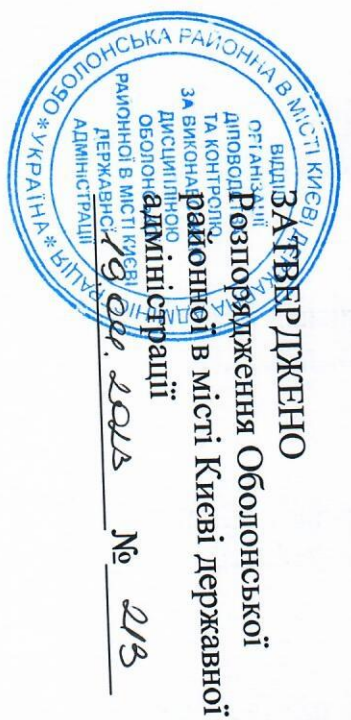 ЗАТВЕРДЖЕНО
Розпорядження Оболонської
районної в місті Києві державної
адміністрації
№ 213
ОБОЛОНСЬКА РАЙОННА В МІСТІ КИЄВІ ДЕРЖАВНА АДМІНІСТРАЦІЯ * УКРАЇНА *
ВІДДІЛ
ОРГАНІЗАЦІЇ
ТА КОНТРОЛЮ
ДИСЦИПЛІНОЮ
РАЙОННОЇ В МІСТІ КИЄВІ
ДЕРЖАВНОЇ
АДМІНІСТРАЦІЇ